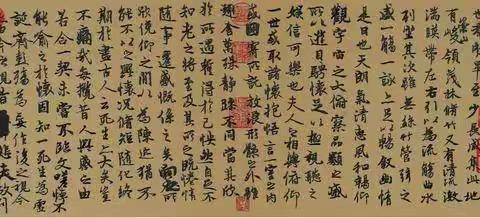 畢至少長咸集此地
有崇山峻領茂林脩竹又有清流激
湍暎帶左右引以為流觴曲水
列坐其次雖無絲竹管弦之
盛一觴一詠亦足以暢敘幽情
是日也天朗氣清惠風和暢仰
觀宇宙之大俯察品類之盛
所以遊目騁懷足以極視聽之
娛信可樂也夫人之相與俯仰
一世或取諸懷抱悟言一室之內
或因寄所託放浪形骸之外雖
趣舍萬殊靜躁不同當其欣
於所遇暫得於己怏然自足不
知老之將至及其所之既惓情
隨事遷感慨係之矣向之所
欣俛仰之閒以為陳迹猶不
能不以之興懷況脩短隨化終
期於盡古人云死生亦大矣豈
不痛哉每攬昔人興感之由
若合一契未嘗不臨文嗟悼不
能喻之於懷固知一死生為虛
誕齊彭殤為妄作後之視今
由今之視昔悲夫故列